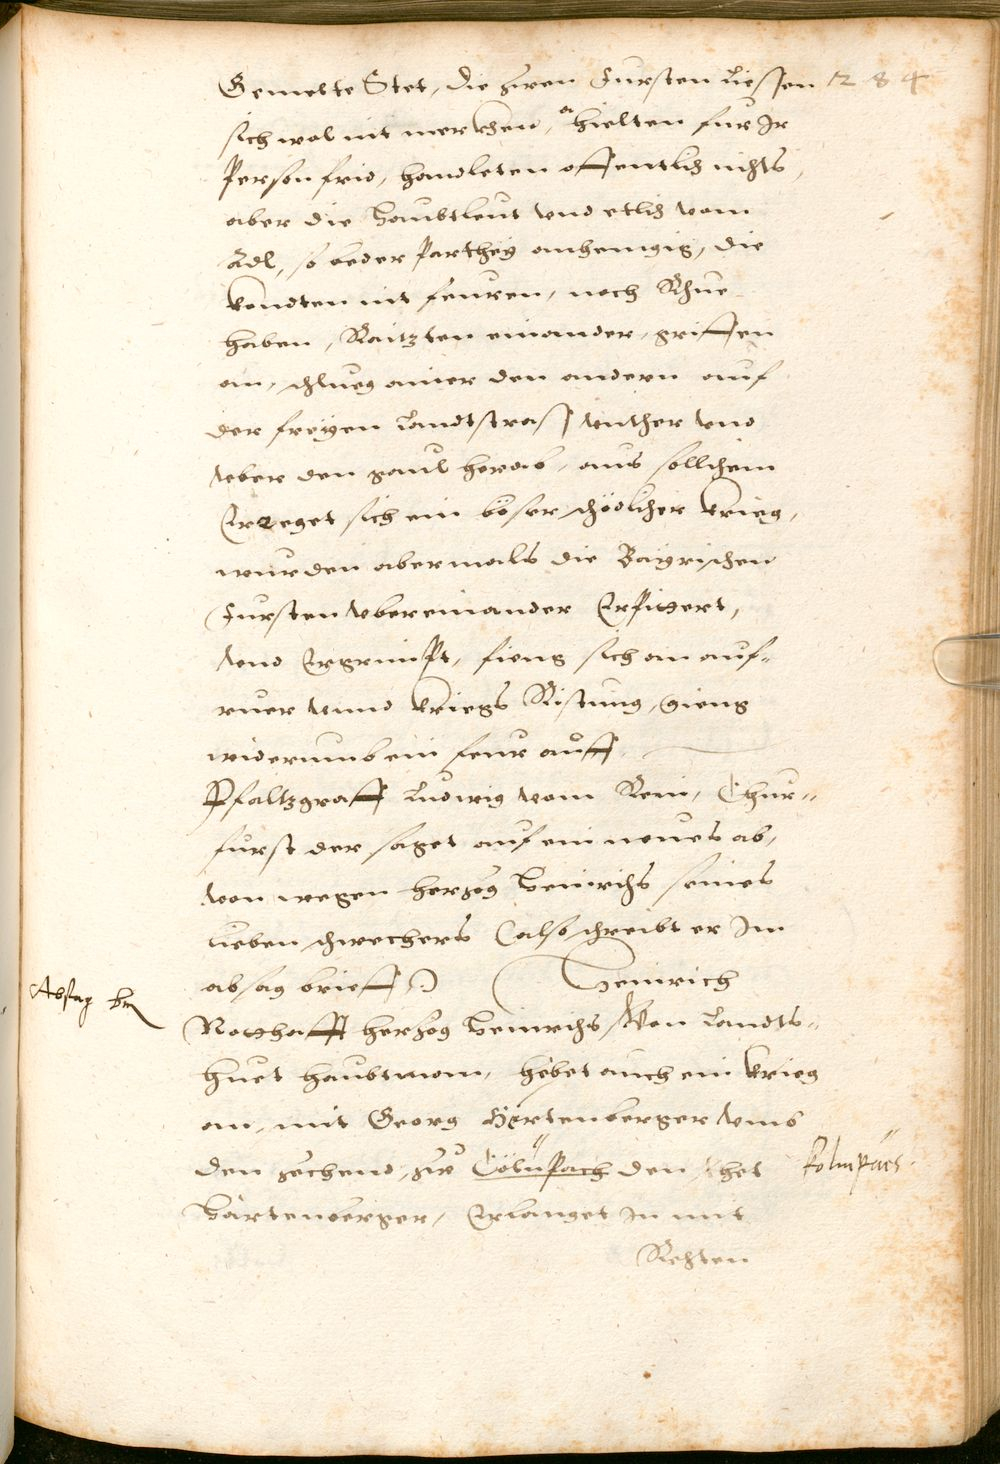 Gemelte Stet, die zwen Fursten Liessen 1284
sich wol nit merckhen, hielten fur Ir
Person frid, handleten offentlich nichts,
aber die Haubtleut vnd etlich vom
Adl, so beder Parthey anhengig, die
kondten nit feuren, noch Rhue
haben, Raitzten einander, griffen
an, schlueg ainer den andern auf
der freyen Landtstrass vnther vnd
vber den gaul herab, aus sollchem
Erreget sich ein böser schödlicher krieg,
wurden abermals die Bayrischen
Fursten vbereinander Erhitzert,
vnd Ergrimbt, fieng sich an auf-
ruer vnnd kriegs Ristung, gieng
widerumb ein feur auff.
Pfaltzgraff Ludwig vom Rein, Chur-
furst der saget auf ein neues ab,
von wegen hertzog Heinrichs seines
lieben schwechers (also schreibt er Im
absag brieff,) Heinrich
Absag br
Notthafft hertzog Heinrichs von Landts-
huet haubtman, hebet auch ein krieg
an, mit Georg Hertenberger vmb
den zechend, zu Cölnpach den het
Kolmpach.
Härtenberger, Erlanget In mit
Rechten